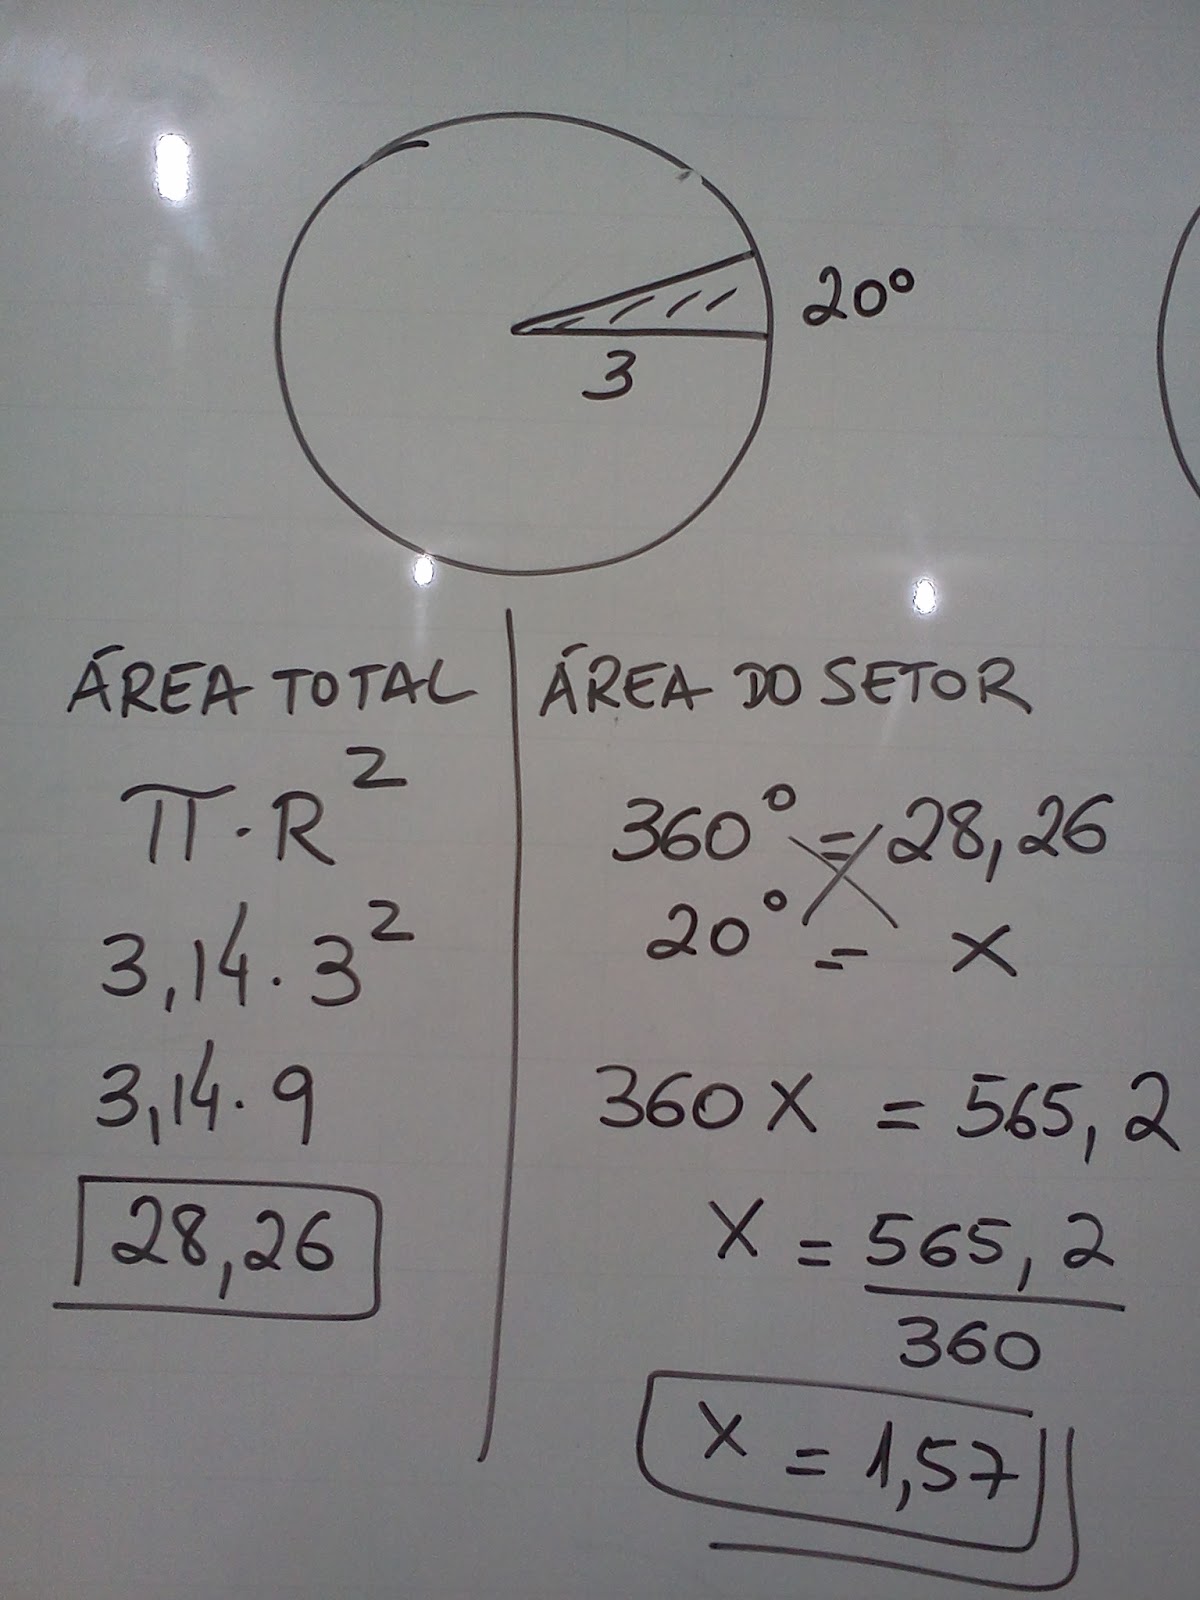 20°
3
ÁREA TOTAL
π · R²
3,14 · 3²
3,14 · 9
28,26
ÁREA DO SETOR
360° = 28,26
20° = x
360 X = 565,2
X = 565,2
360
X = 1,57